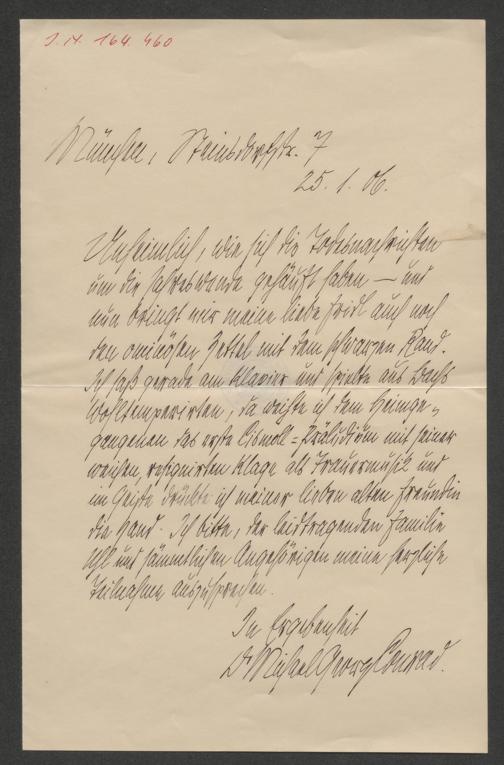 J. N. 164.460
München, Steinsdorfstr. 7
25. 1. 06.
Unheimlich, wie sich die Todesnachrichten
um die Jahreswende gehäuft haben — und
nun bringt mir meine liebe Fridl auch noch
den ominösen Zettel mit dem schwarzen Rand.
Ich saß gerade am Klavier und spielte aus Bachs
Wohltemperirten, da weihte ich dem Heimge-
gangenen das erste Cismoll-Präludium mit seiner
weichen, resignirten Klage als Trauermusik und
im Geiste drückte ich meiner lieben alten Freundin
die Hand. Ich bitte, der leidtragenden Familie
Uhl und sämmtlichen Angehörigen meine herzliche
Teilnahme auszusprechen.
In Ergebenheit
Dr Michael Georg Conrad.